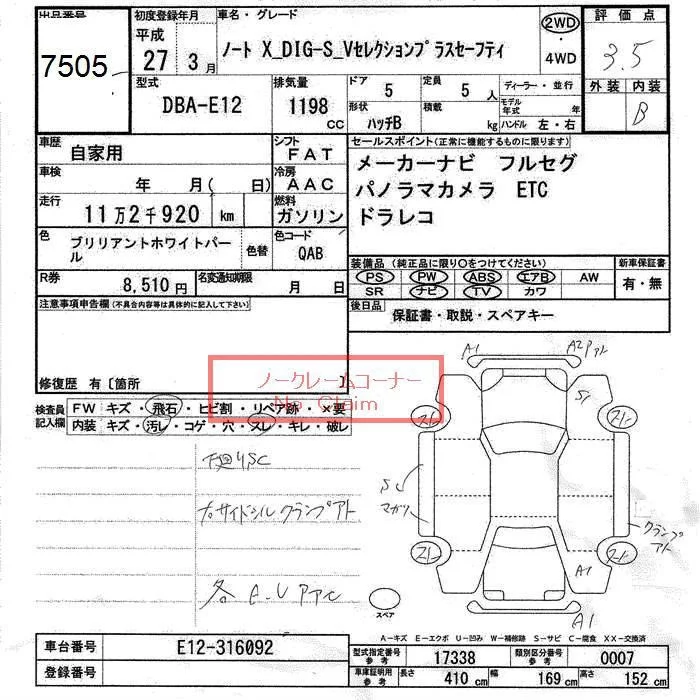 出品番号 初度登録年月 車名・グレード 2WD 評価点
7505 平成 27年 3月 ノート X_DIG-S_Vセレクションプラスセーフティ ・ 4WD 3.5
型式 排気量 ドア 定員 ディーラー・並行 外装 内装
DBA-E12 1198 cc 5 5人 モデル年式 年 B
形状 積載 ハンドル 左・右
ハッチB kg
車歴 自家用 シフト FAT セールスポイント(正常に機能するものに限ります)
車検 年 月( 日) 冷房 AAC メーカーナビ フルセグ
パノラマカメラ ETC
走行 11万2千920 km 燃料 ガソリン ドラレコ
色 ブリリアントホワイトパール 色替 色コード QAB
装備品(純正品に限り○をつけてください) 新車保証書
PS PW ABS エアB AW 有・無
R券 8,510円 名変通知期限 月 日 SR ナビ TV カワ
注意事項申告欄(不具合内容等は具体的に記入して下さい) 後日品 保証書・取説・スペアキー
修復歴 有〔箇所 〕
ノークレームコーナー
No Claim
検査員記入欄 FW キズ・飛石・ヒビ割・リペア跡・×要
内装 キズ・汚レ・コゲ・穴・スレ・キレ・破レ
A1 A2Pアト
S1
スレ スレ
下廻りSC
S
マガリ
右サイドシルクランプアト
クランプアト
スレ スレ
A1
各E.UPアC
スペア
A1
A-キズ E-エクボ U-凹み W-補修跡 S-サビ C-腐食 XX-交換済
車台番号 E12-316092
型式指定番号 参考 17338 類別区分番号 参考 0007
登録番号
車庫証明用 参考 長さ 410 cm 幅 169 cm 高さ 152 cm